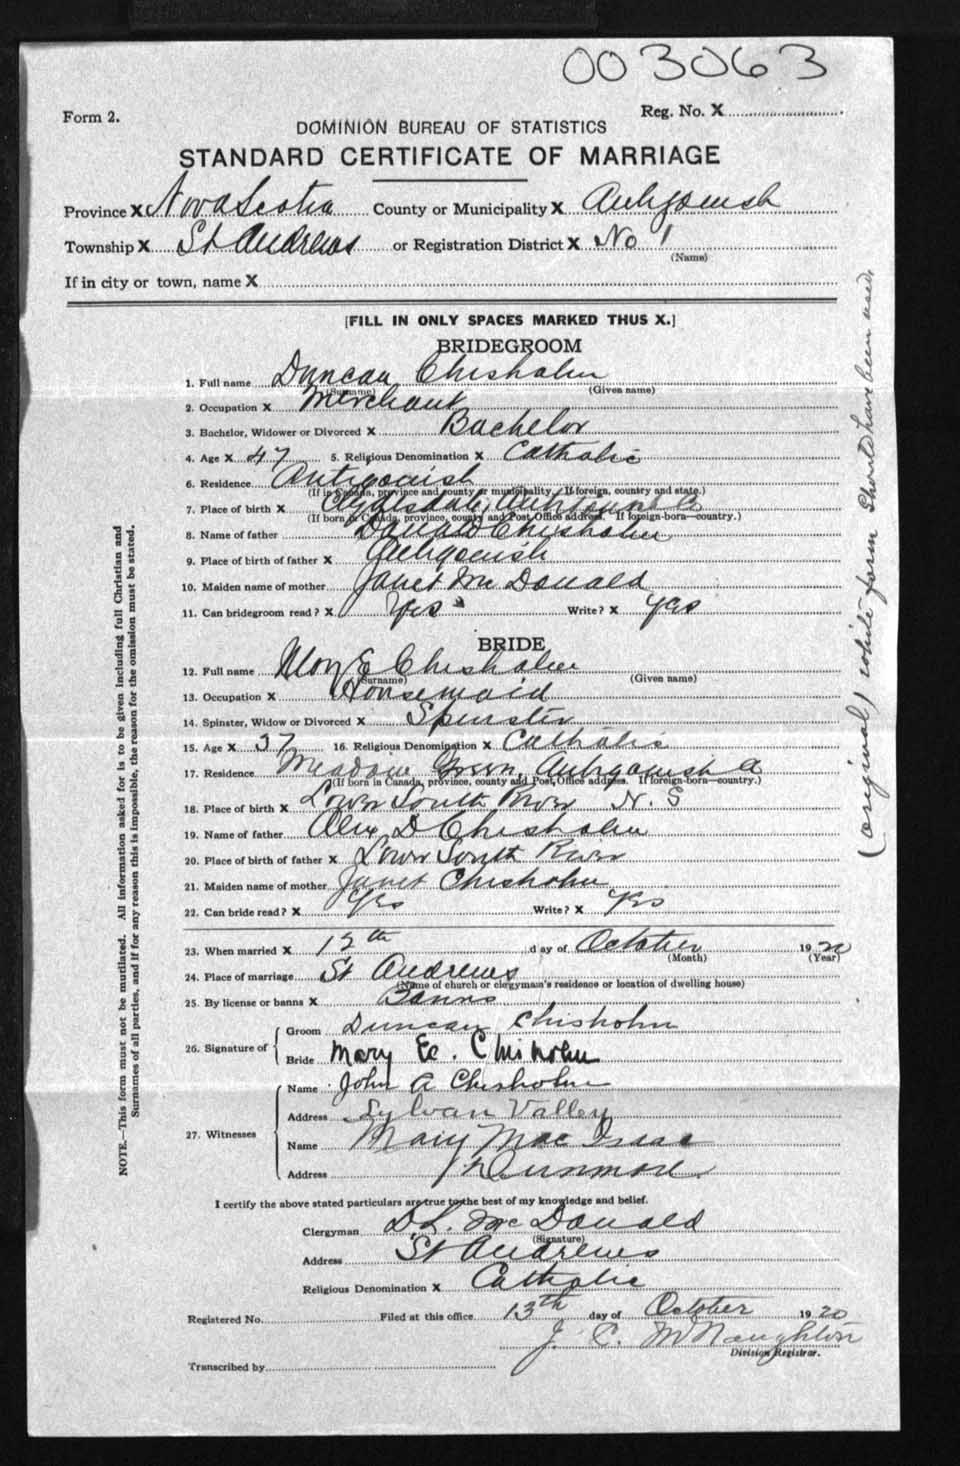 003063
Form 2.
Reg. No. X
DOMINION BUREAU OF STATISTICS
STANDARD CERTIFICATE OF MARRIAGE
Province X Nova Scotia County or Municipality X Antigonish
Township X St Andrews or Registration District X No 1
(Name)
If in city or town, name X
[FILL IN ONLY SPACES MARKED THUS X.]
BRIDEGROOM
1. Full name Duncan Chisholm
(Surname) (Given name)
2. Occupation X Merchant
3. Bachelor, Widower or Divorced X Bachelor
4. Age X 47 5. Religious Denomination X Catholic
6. Residence Antigonish
(If in Canada, province and county or municipality. If foreign, country and state.)
7. Place of birth X Clydesdale, Antigonish
(If born in Canada, province, county and Post Office address. If foreign-born—country.)
8. Name of father Donald Chisholm
9. Place of birth of father X Antigonish
10. Maiden name of mother Janet Mc Donald
11. Can bridegroom read? X Yes Write? X Yes
BRIDE
12. Full name Mary E Chisholm
(Surname) (Given name)
13. Occupation X Housemaid
14. Spinster, Widow or Divorced X Spinster
15. Age X 37 16. Religious Denomination X Catholic
17. Residence Meadow Green, Antigonish
(If born in Canada, province, county and Post Office address. If foreign-born—country.)
18. Place of birth X Lower South River N. S
19. Name of father Alex D Chisholm
20. Place of birth of father X Lower South River
21. Maiden name of mother Janet Chisholm
22. Can bride read? X Yes Write? X Yes
23. When married X 12th day of October 1920
(Month) (Year)
24. Place of marriage St Andrews
(Name of church or clergyman's residence or location of dwelling house)
25. By license or banns X Banns
26. Signature of
Groom Duncan Chisholm
Bride Mary E. Chisholm
27. Witnesses
Name John A Chisholm
Address Sylvan Valley
Name Mary Mac Isaac
Address Dunmore.
I certify the above stated particulars are true to the best of my knowledge and belief.
Clergyman D. L. Mc Donald
(Signature)
Address St Andrews
Religious Denomination X Catholic
Registered No. Filed at this office 13th day of October 1920
J. C. McNaughton
Division Registrar.
Transcribed by
NOTE.—This form must not be mutilated. All information asked for is to be given including full Christian and
Surnames of all parties, and if for any reason this is impossible, the reason for the omission must be stated.
(original, white form should have been used.